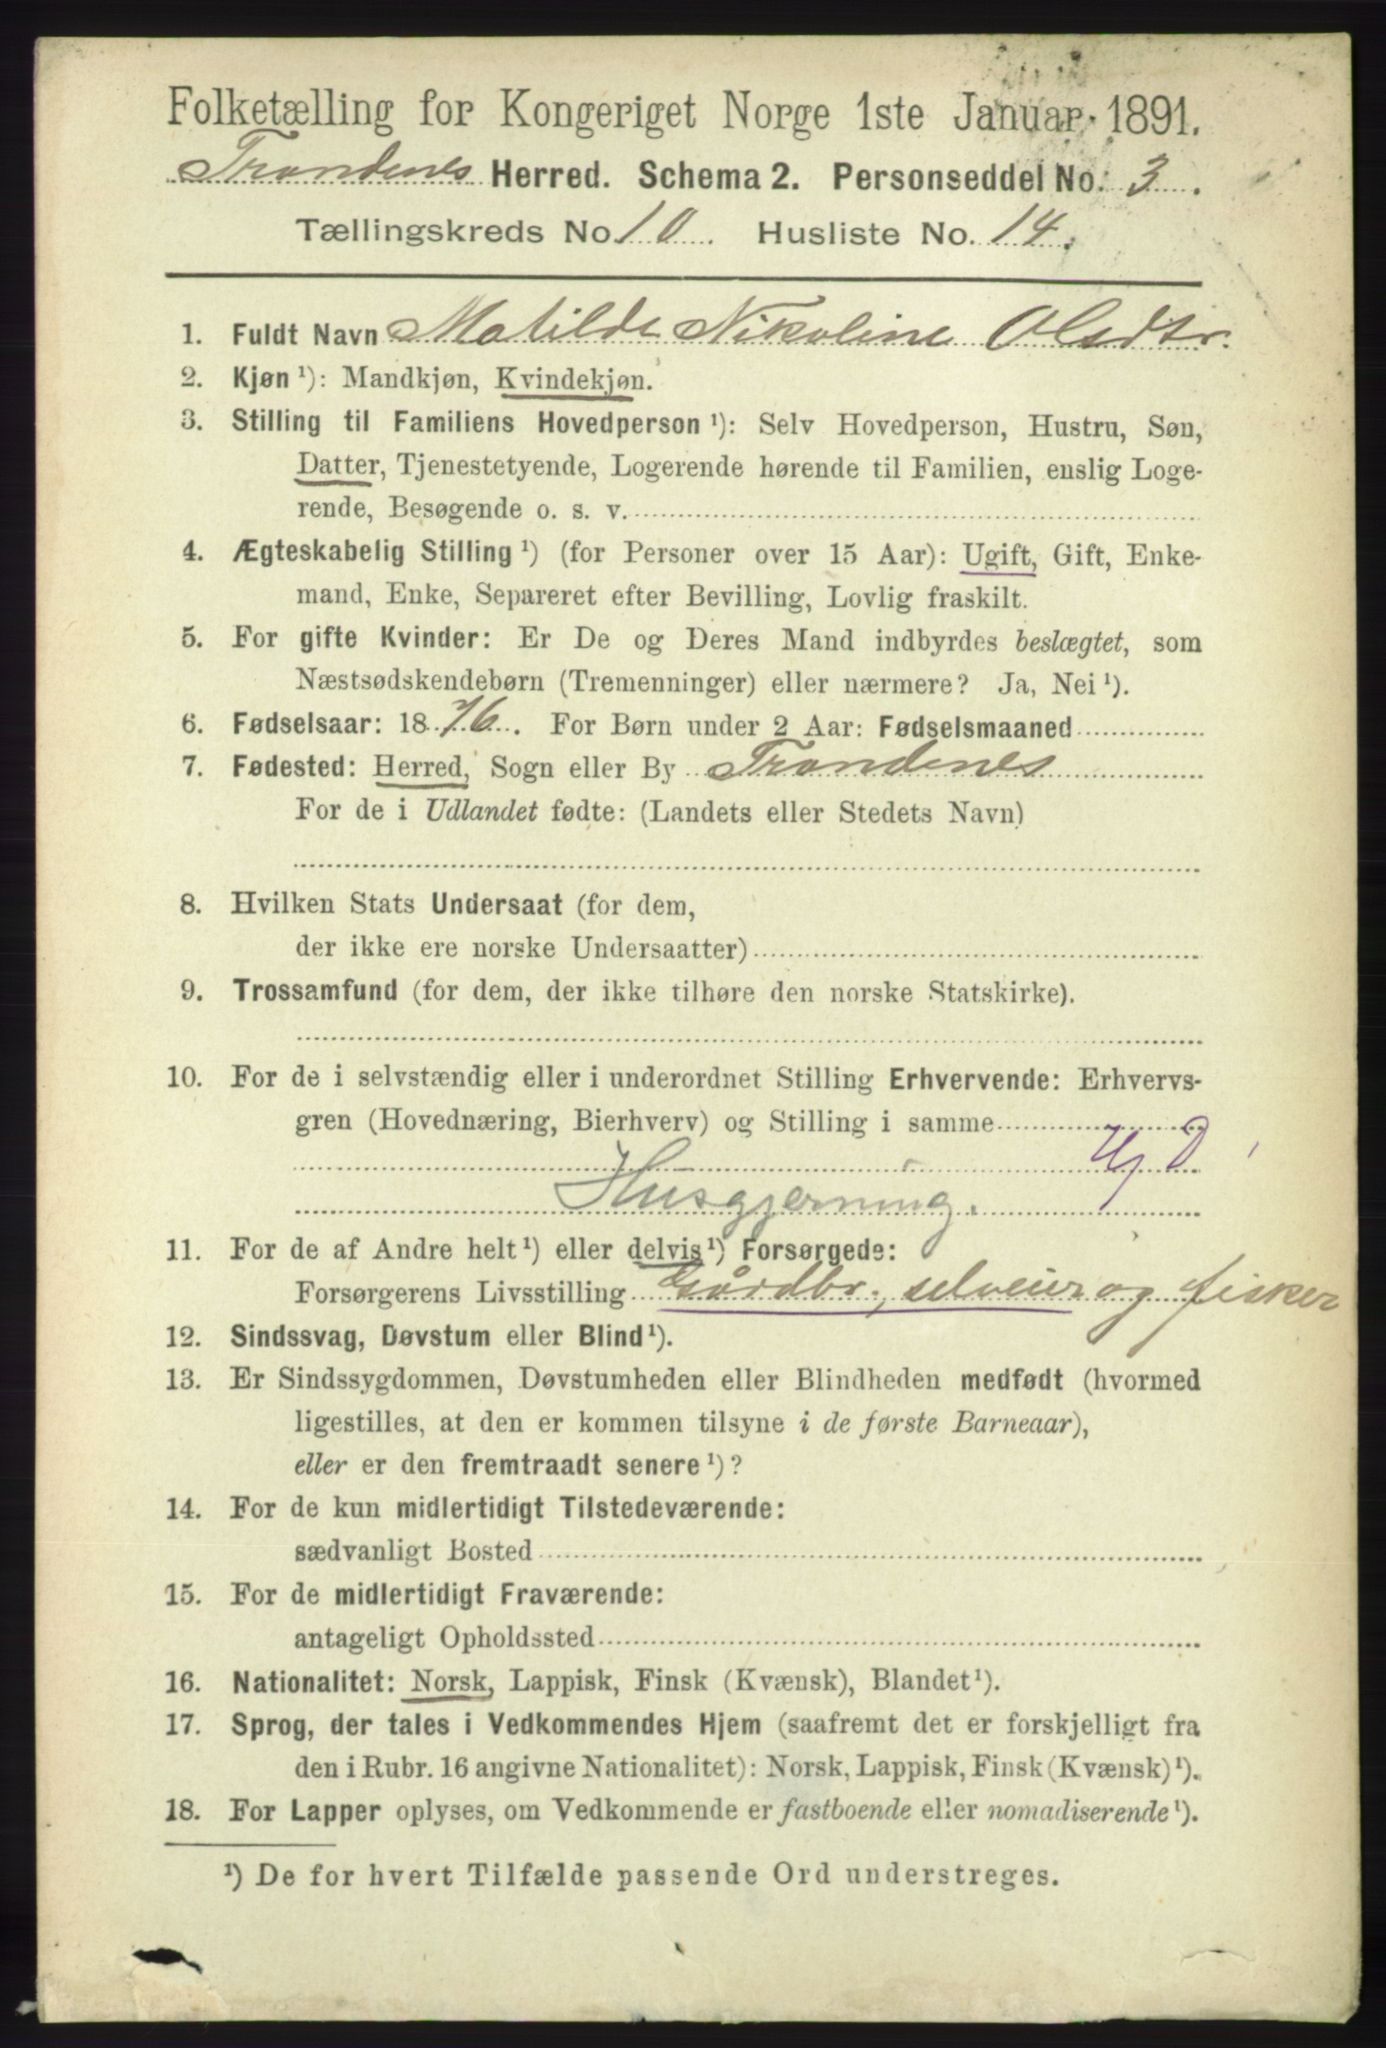 Folketælling for Kongeriget Norge 1ste Januar 1891.
Trondenes Herred. Schema 2. Personseddel No. 3.
Tællingskreds No. 10. Husliste No. 14.
1. Fuldt Navn Matilde Nikoline Olsdtr.
2. Kjøn ¹): Mandkjøn, Kvindekjøn.
3. Stilling til Familiens Hovedperson ¹): Selv Hovedperson, Hustru, Søn,
Datter, Tjenestetyende, Logerende hørende til Familien, enslig Loge-
rende, Besøgende o. s. v.
4. Ægteskabelig Stilling ¹) (for Personer over 15 Aar): Ugift, Gift, Enke-
mand, Enke, Separeret efter Bevilling, Lovlig fraskilt.
5. For gifte Kvinder: Er De og Deres Mand indbyrdes beslægtet, som
Næstsødskendebørn (Tremenninger) eller nærmere? Ja, Nei ¹).
6. Fødselsaar: 1876. For Børn under 2 Aar: Fødselsmaaned
7. Fødested: Herred, Sogn eller By Trondenes
For de i Udlandet fødte: (Landets eller Stedets Navn)
8. Hvilken Stats Undersaat (for dem,
der ikke ere norske Undersaatter)
9. Trossamfund (for dem, der ikke tilhøre den norske Statskirke).
10. For de i selvstændig eller i underordnet Stilling Erhvervende: Erhvervs-
gren (Hovednæring, Bierhverv) og Stilling i samme
Hj D
Husgjerning.
11. For de af Andre helt ¹) eller delvis ¹) Forsørgede:
Forsørgerens Livsstilling Gårdbr., selveier og fisker
12. Sindssvag, Døvstum eller Blind ¹).
13. Er Sindssygdommen, Døvstumheden eller Blindheden medfødt (hvormed
ligestilles, at den er kommen tilsyne i de første Barneaar),
eller er den fremtraadt senere ¹)?
14. For de kun midlertidigt Tilstedeværende:
sædvanligt Bosted
15. For de midlertidigt Fraværende:
antageligt Opholdssted
16. Nationalitet: Norsk, Lappisk, Finsk (Kvænsk), Blandet ¹).
17. Sprog, der tales i Vedkommendes Hjem (saafremt det er forskjelligt fra
den i Rubr. 16 angivne Nationalitet): Norsk, Lappisk, Finsk (Kvænsk) ¹).
18. For Lapper oplyses, om Vedkommende er fastboende eller nomadiserende ¹).
¹) De for hvert Tilfælde passende Ord understreges.